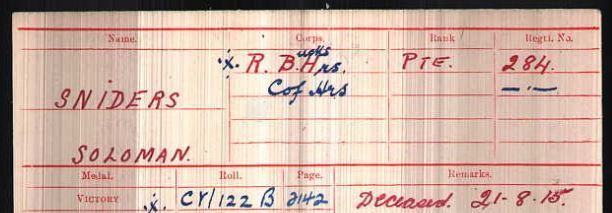 Name. Corps. Rank Regtl. No.
·X· R. Bucks Hrs. PTE. 284.
C of Hrs —·—
SNIDERS
SOLOMAN.
Medal. Roll. Page. Remarks.
VICTORY ·X· CY/122 B 2142 Deceased. 21-8-15.